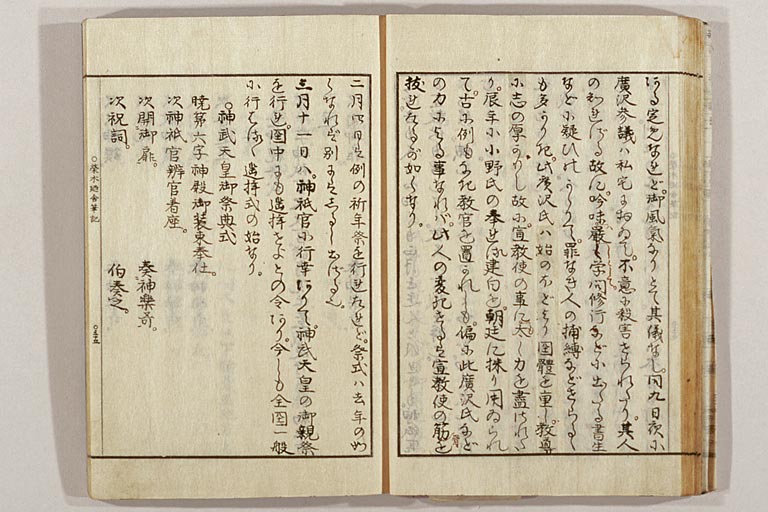 ける定なれど御風氣によりて其儀なし同九日夜に
廣沢参議ハ私宅に於ゐて不意に殺害せられたり其人
の知れざる故に吟味厳しく学問修行などに出たる書生
など小疑ひのかゝりて罪なき人の捕縛などせらるゝ
も多かりき此廣沢氏ハ始のほどより国體を重し教導
に志の厚かりし故に宣教使の事に太く力を盡されたり
辰年に小野氏の奉せる建白を朝廷に採り用ゐられ
て古に例もなき教官を置かれしも偏に此廣沢氏など
の力による事なれバ此人の変死せるは宣教使の筋を
抜せたるが如くなり
二月四日は例の祈年祭を行せたまへど祭式ハ去年の如
くなれバ別にしるし出さず
三月十一日ハ神祇官に行幸ありて神武天皇の御親祭
を行せ国中にも遥拝せよとの令あり今しも全国一般
に行はるゝ遥拝式の始なり
○神武天皇御祭典式
暁第六字神殿御装束奉仕
次神祇官辨官着座
次開御扉 奏神樂哥
次祝詞 伯奏之
○榮木廼舎筆記